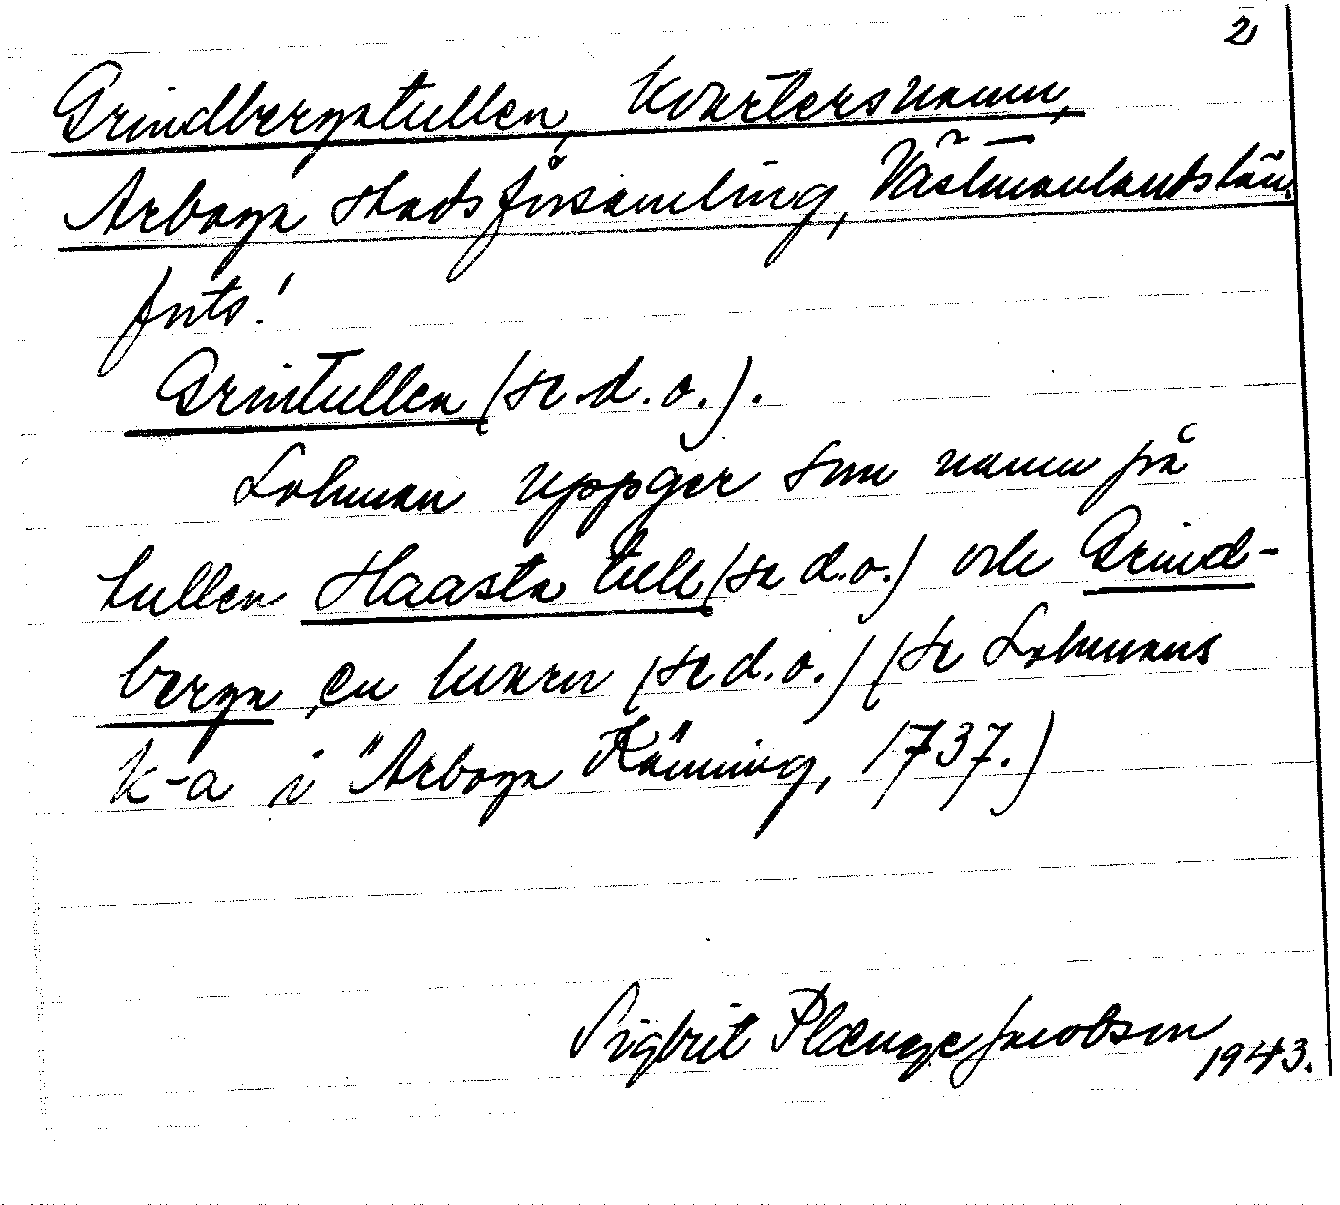 2
Grindbergatullen, Kvartersnamn,
Arboga stadsförsamling, Västmanlands län.
forts!
Grintullen (se d. o.).
Lohman uppger som namn på
tullen Haasta tull (se d.o.) och Grind-
berga, en kvarn (se d.o.) (se Lohmans
k-a i "Arboga Känning", 1737.)
Sigbrit Plænge Jacobson
1943.